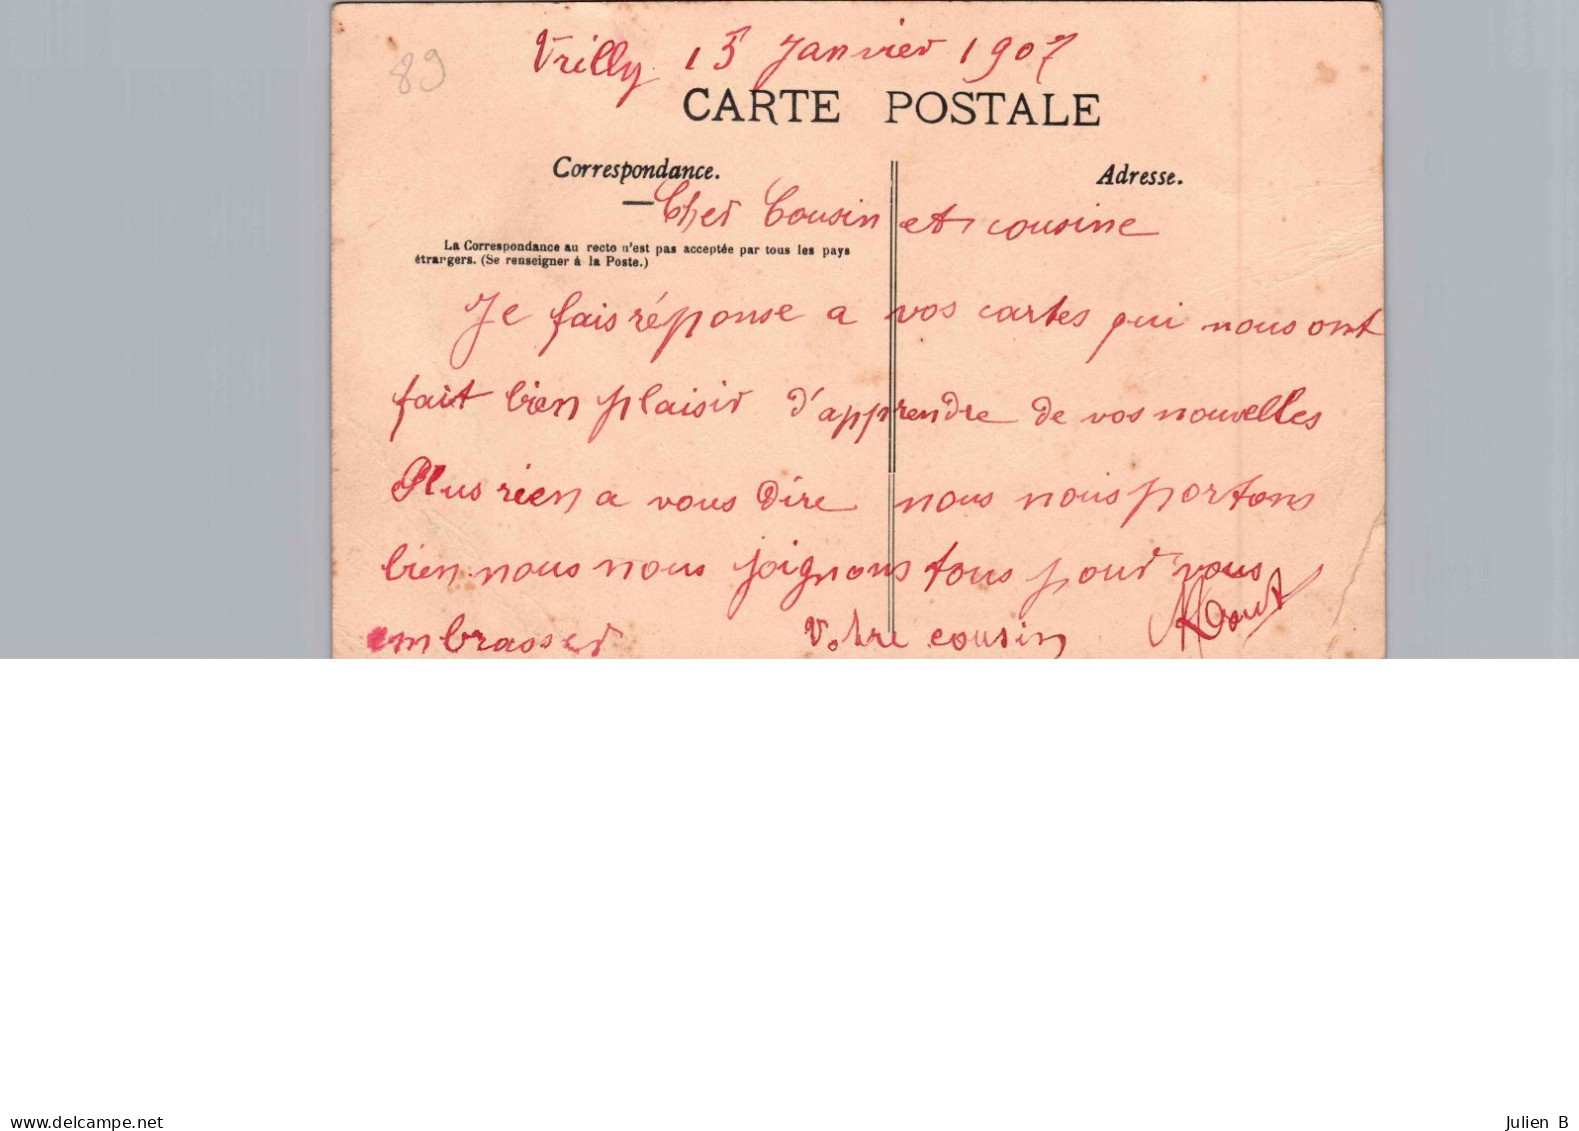 89
Vrilly 15 Janvier 1907
CARTE POSTALE
Correspondance.
Adresse.
Cher Cousin et cousine
La Correspondance au recto n'est pas acceptée par tous les pays
étrangers. (Se renseigner à la Poste.)
Je fais réponse a vos cartes qui nous ont
fait bien plaisir d'apprendre de vos nouvelles
Plus rien a vous dire nous nous portons
bien nous nous joignons tous pour vous
embrasser Votre cousin
www.delcampe.net
Julien B